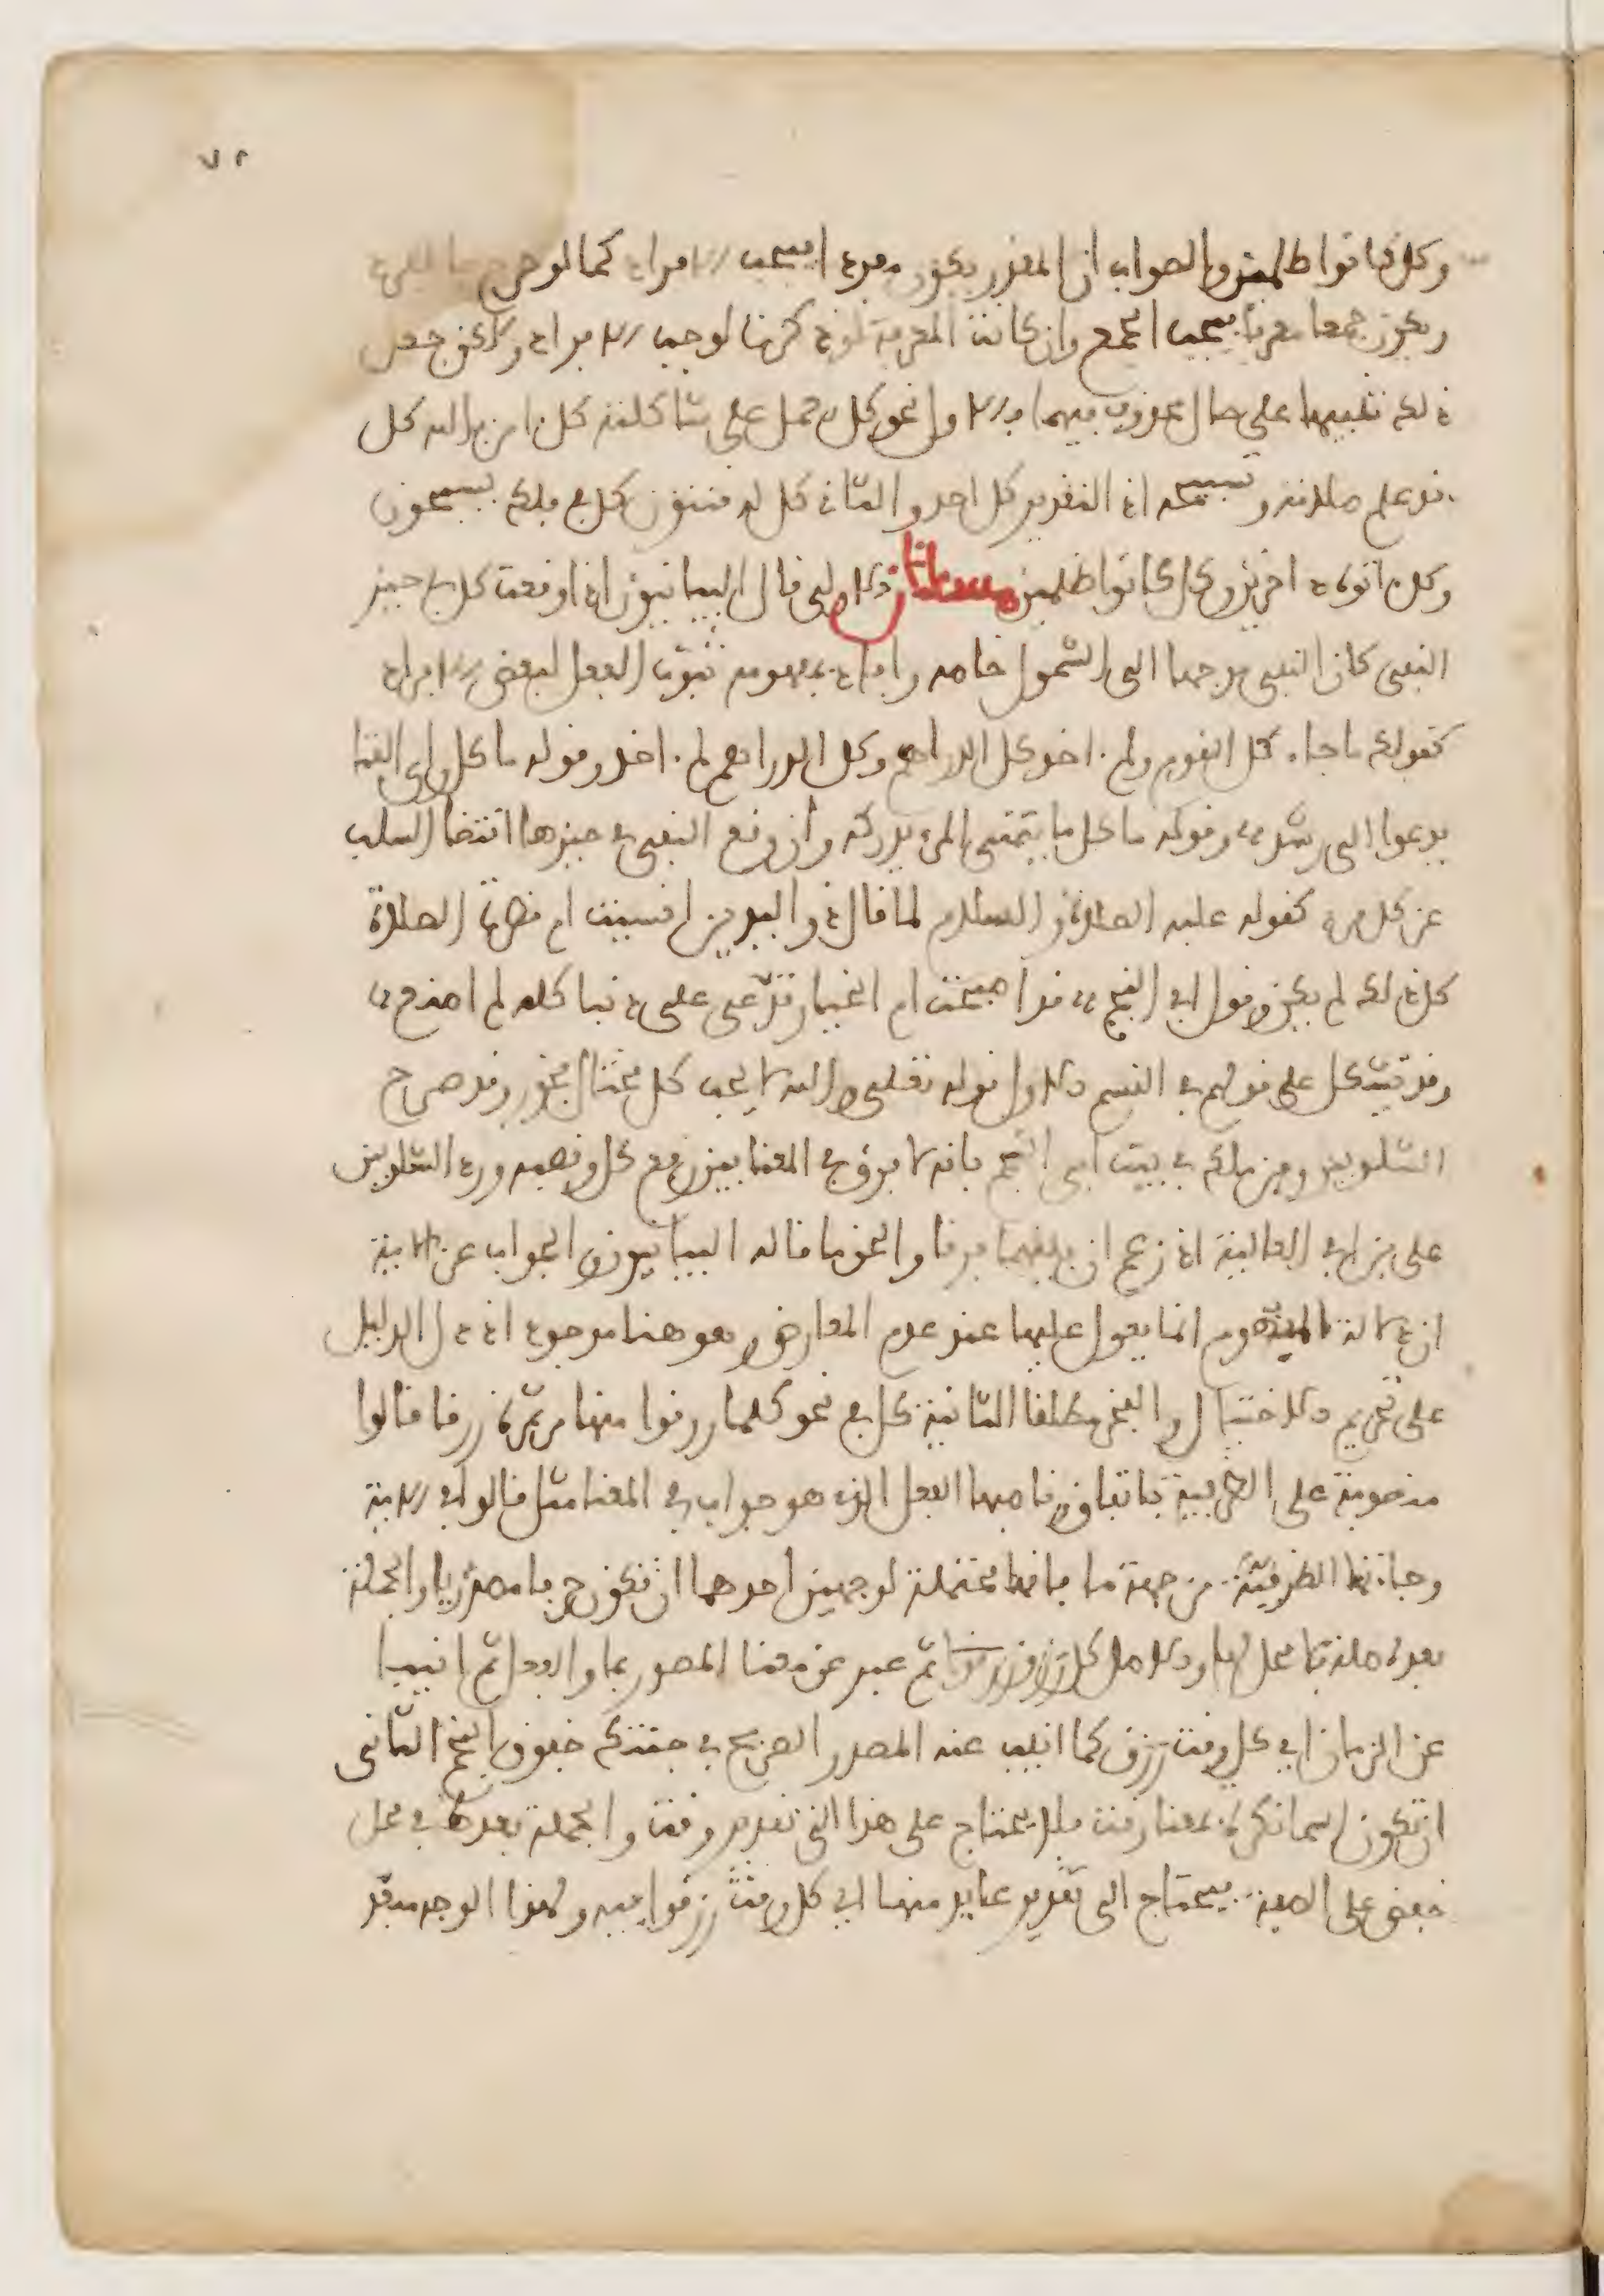 ٧٢
وكل كانوا ظلمين والصواب ان المقدر يكون مفردا فيجب الافراد كما لو صرح بالمفرد
ويكون جمعا معرفا فيجب الجمع وان كانت المعرفة لو ذكرتها لوجب الافراد ولاكن جعل
ذلك تنبيها على حال المحذوف فيهما فالاول نحو كل يعمل على شاكلته كل امن بالله كل
قد علم صلاته وتسبيحه اذ التقدير كل احد والثاني كل له قنتون كل في فلك يسبحون
وكل اتوه داخرين وكل كانوا ظلمين مسئلتان الاولى قال البيانيون اذا وقعت كل في حيز
النفي كان النفي موجها الى الشمول خاصه وافاد بمفهومه ثبوت الفعل لبعض الافراد
كقولك ما جاء كل القوم ولم ءاخذ كل الدراهم وكل الدراهم لم ءاخذ وقوله ما كل راي الفتا
يدعوا الى رشد وقوله ما كل ما يتمنى المرء يدركه وان وقع النفي في حيزها اقتضا السلب
عن كل فرد كقوله عليه الصلاة والسلام لما قال ذو اليدين انسيت ام قصرت الصلاة
كل ذلك لم يكن وقول ابي النجم قد اصبحت ام الخيار تدعي علي ذنبا كله لم اصنع
وقد يشكل على قولهم في القسم الاول قوله تعلى والله لا يحب كل مختال فخور وقد صرح
الشلوبين وابن ملك في بيت ابي النجم بانه لا فرق في المعنا بين رفع كل ونصبه ورد الشلوبين
على ابن ابي العالية اذ زعم ان بينهما فرقا والحق ما قاله البيانيون والجواب عن الاية
ان دلالة المفهوم انما يعول عليها عند عدم المعارض وهو هنا موجود اذ دل الدليل
على تحريم الاختيال والفخر مطلقا الثانية كل في نحو كلما رزقوا منها من ثمرة رزقا قالوا
منصوبة على الظرفية باتفاق وناصبها الفعل الذي هو جواب في المعنا مثل قالوا في الاية
وجاءتها الظرفية من جهة ما فانها محتملة لوجهين احدهما ان تكون حرفا مصدريا والجملة
بعده صلة لا محل لها والاصل كل رزق ثم عبر عن معنا المصدر بما والفعل ثم انيبا
عن الزمان اي كل وقت رزق كما انيب عنه المصدر الصريح في جئتك خفوق النجم الثاني
ان تكون اسما نكرة بمعنا وقت فلا يحتاج على هذا الى تقدير وقت والجملة بعده في محل
خفض على الصفة فيحتاج الى تقدير عايد منها اي كل وقت رزقوا فيه ولهذا الوجه مبعد